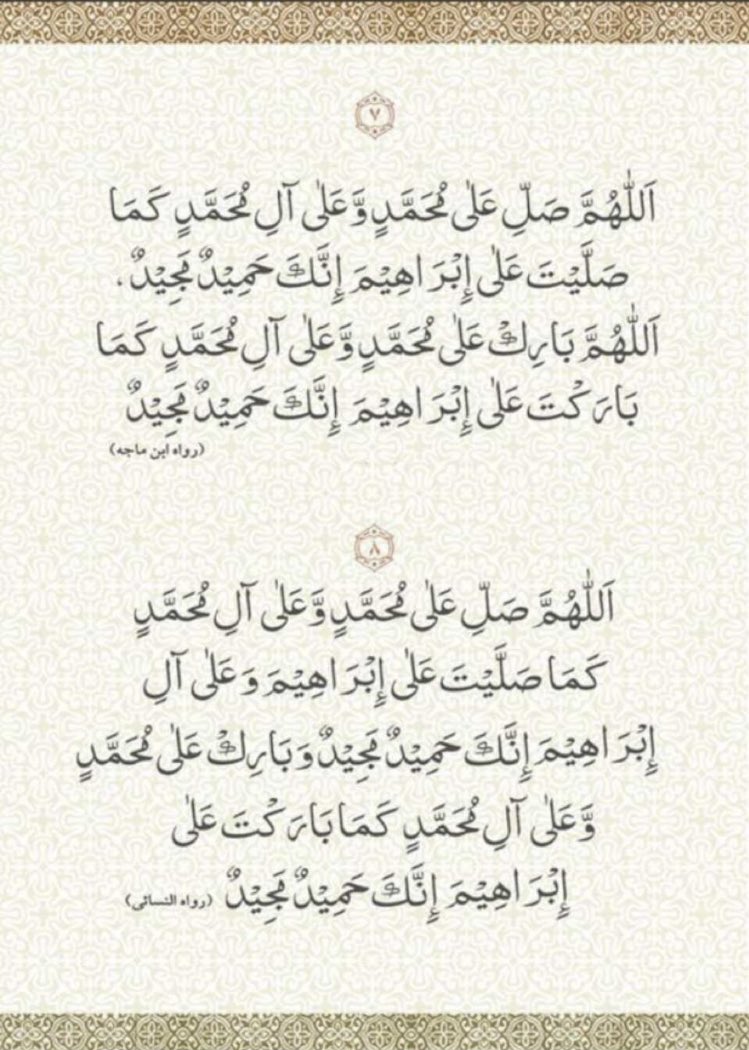 ٧
اَللّٰهُمَّ صَلِّ عَلٰى مُحَمَّدٍ وَّعَلٰى آلِ مُحَمَّدٍ كَمَا
صَلَّيْتَ عَلٰى إِبْرَاهِيْمَ إِنَّكَ حَمِيْدٌ مَّجِيْدٌ،
اَللّٰهُمَّ بَارِكْ عَلٰى مُحَمَّدٍ وَّعَلٰى آلِ مُحَمَّدٍ كَمَا
بَارَكْتَ عَلٰى إِبْرَاهِيْمَ إِنَّكَ حَمِيْدٌ مَّجِيْدٌ
(رواه ابن ماجه)
٨
اَللّٰهُمَّ صَلِّ عَلٰى مُحَمَّدٍ وَّعَلٰى آلِ مُحَمَّدٍ
كَمَا صَلَّيْتَ عَلٰى إِبْرَاهِيْمَ وَعَلٰى آلِ
إِبْرَاهِيْمَ إِنَّكَ حَمِيْدٌ مَّجِيْدٌ وَبَارِكْ عَلٰى مُحَمَّدٍ
وَّعَلٰى آلِ مُحَمَّدٍ كَمَا بَارَكْتَ عَلٰى
إِبْرَاهِيْمَ إِنَّكَ حَمِيْدٌ مَّجِيْدٌ (رواه النسائى)